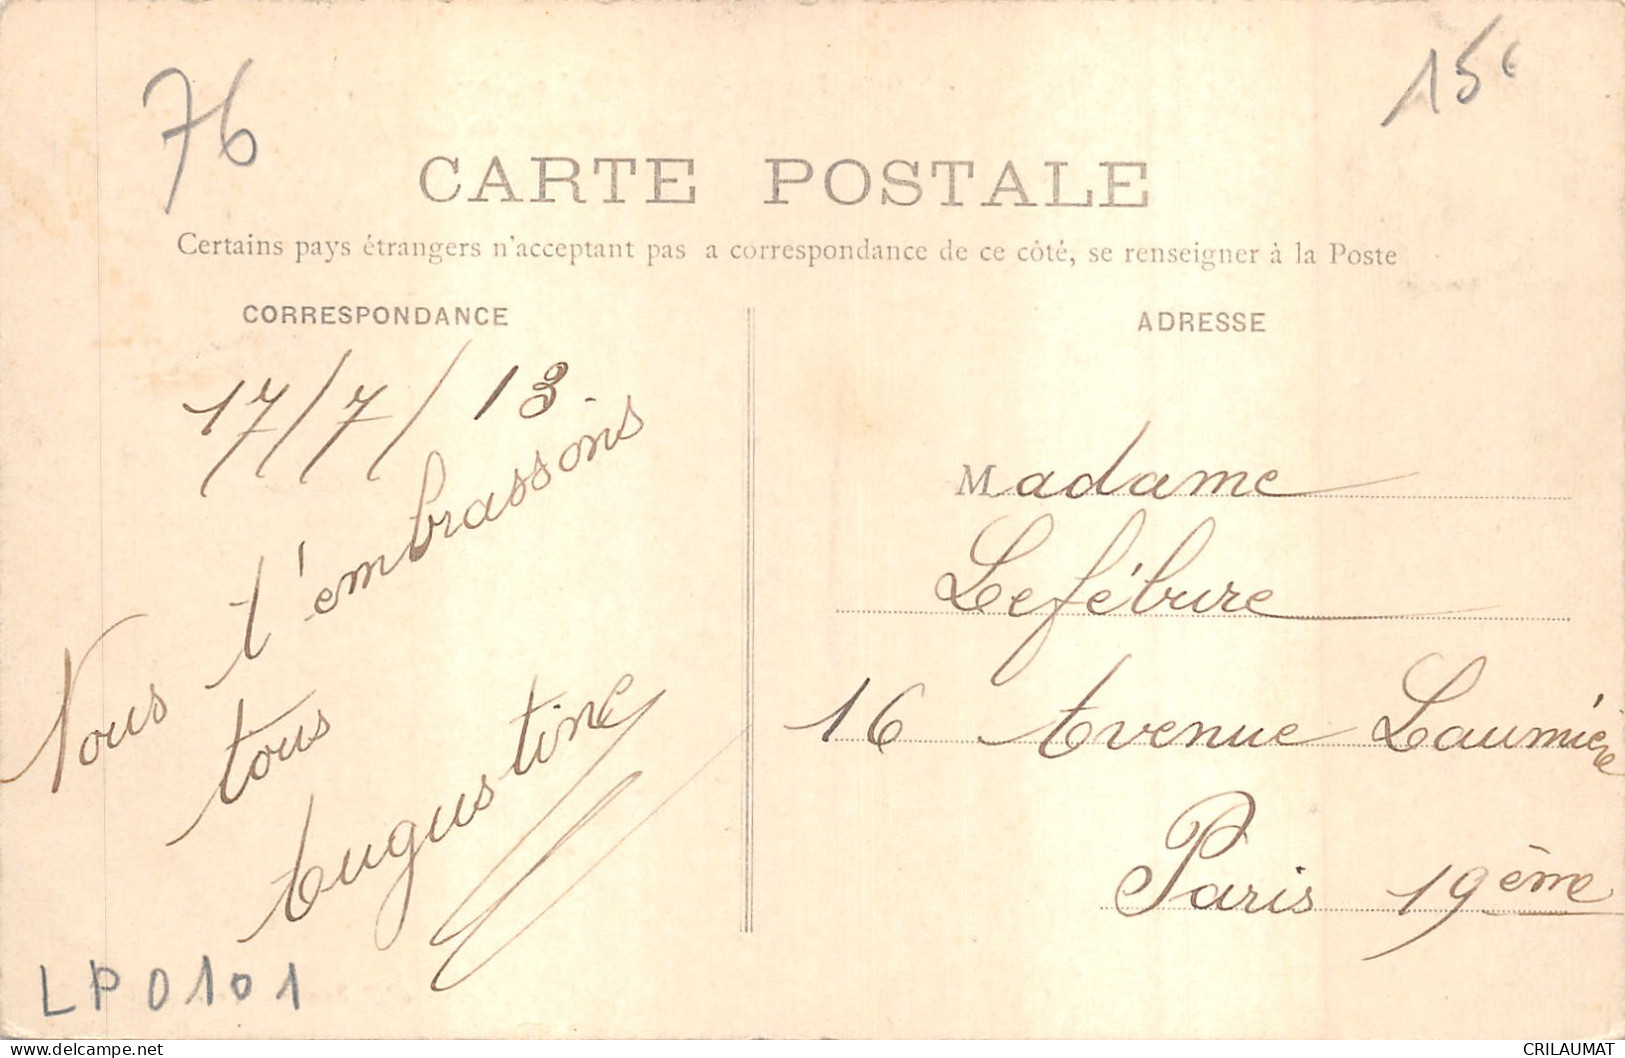 76
15€
CARTE POSTALE
Certains pays étrangers n'acceptant pas a correspondance de ce côté, se renseigner à la Poste
CORRESPONDANCE
17/7/13.
Nous t'embrassons
tous
Augustine
LP0101
ADRESSE
Madame
Lefébure
16 Avenue Laumière
Paris 19ème
CRILAUMAT